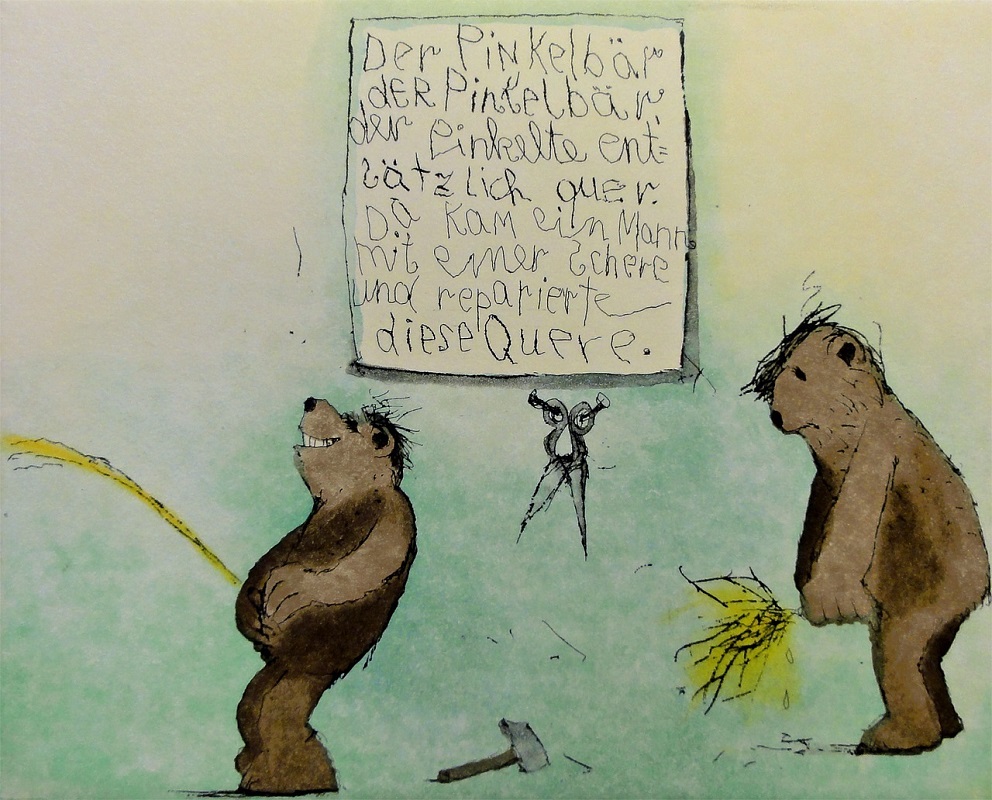 Der Pinkelbär
dER Pinkelbär,
der Pinkelte ent=
sätzlich quer.
Da kam ein Mann
mit einer Schere
und reparierte
diese Quere.